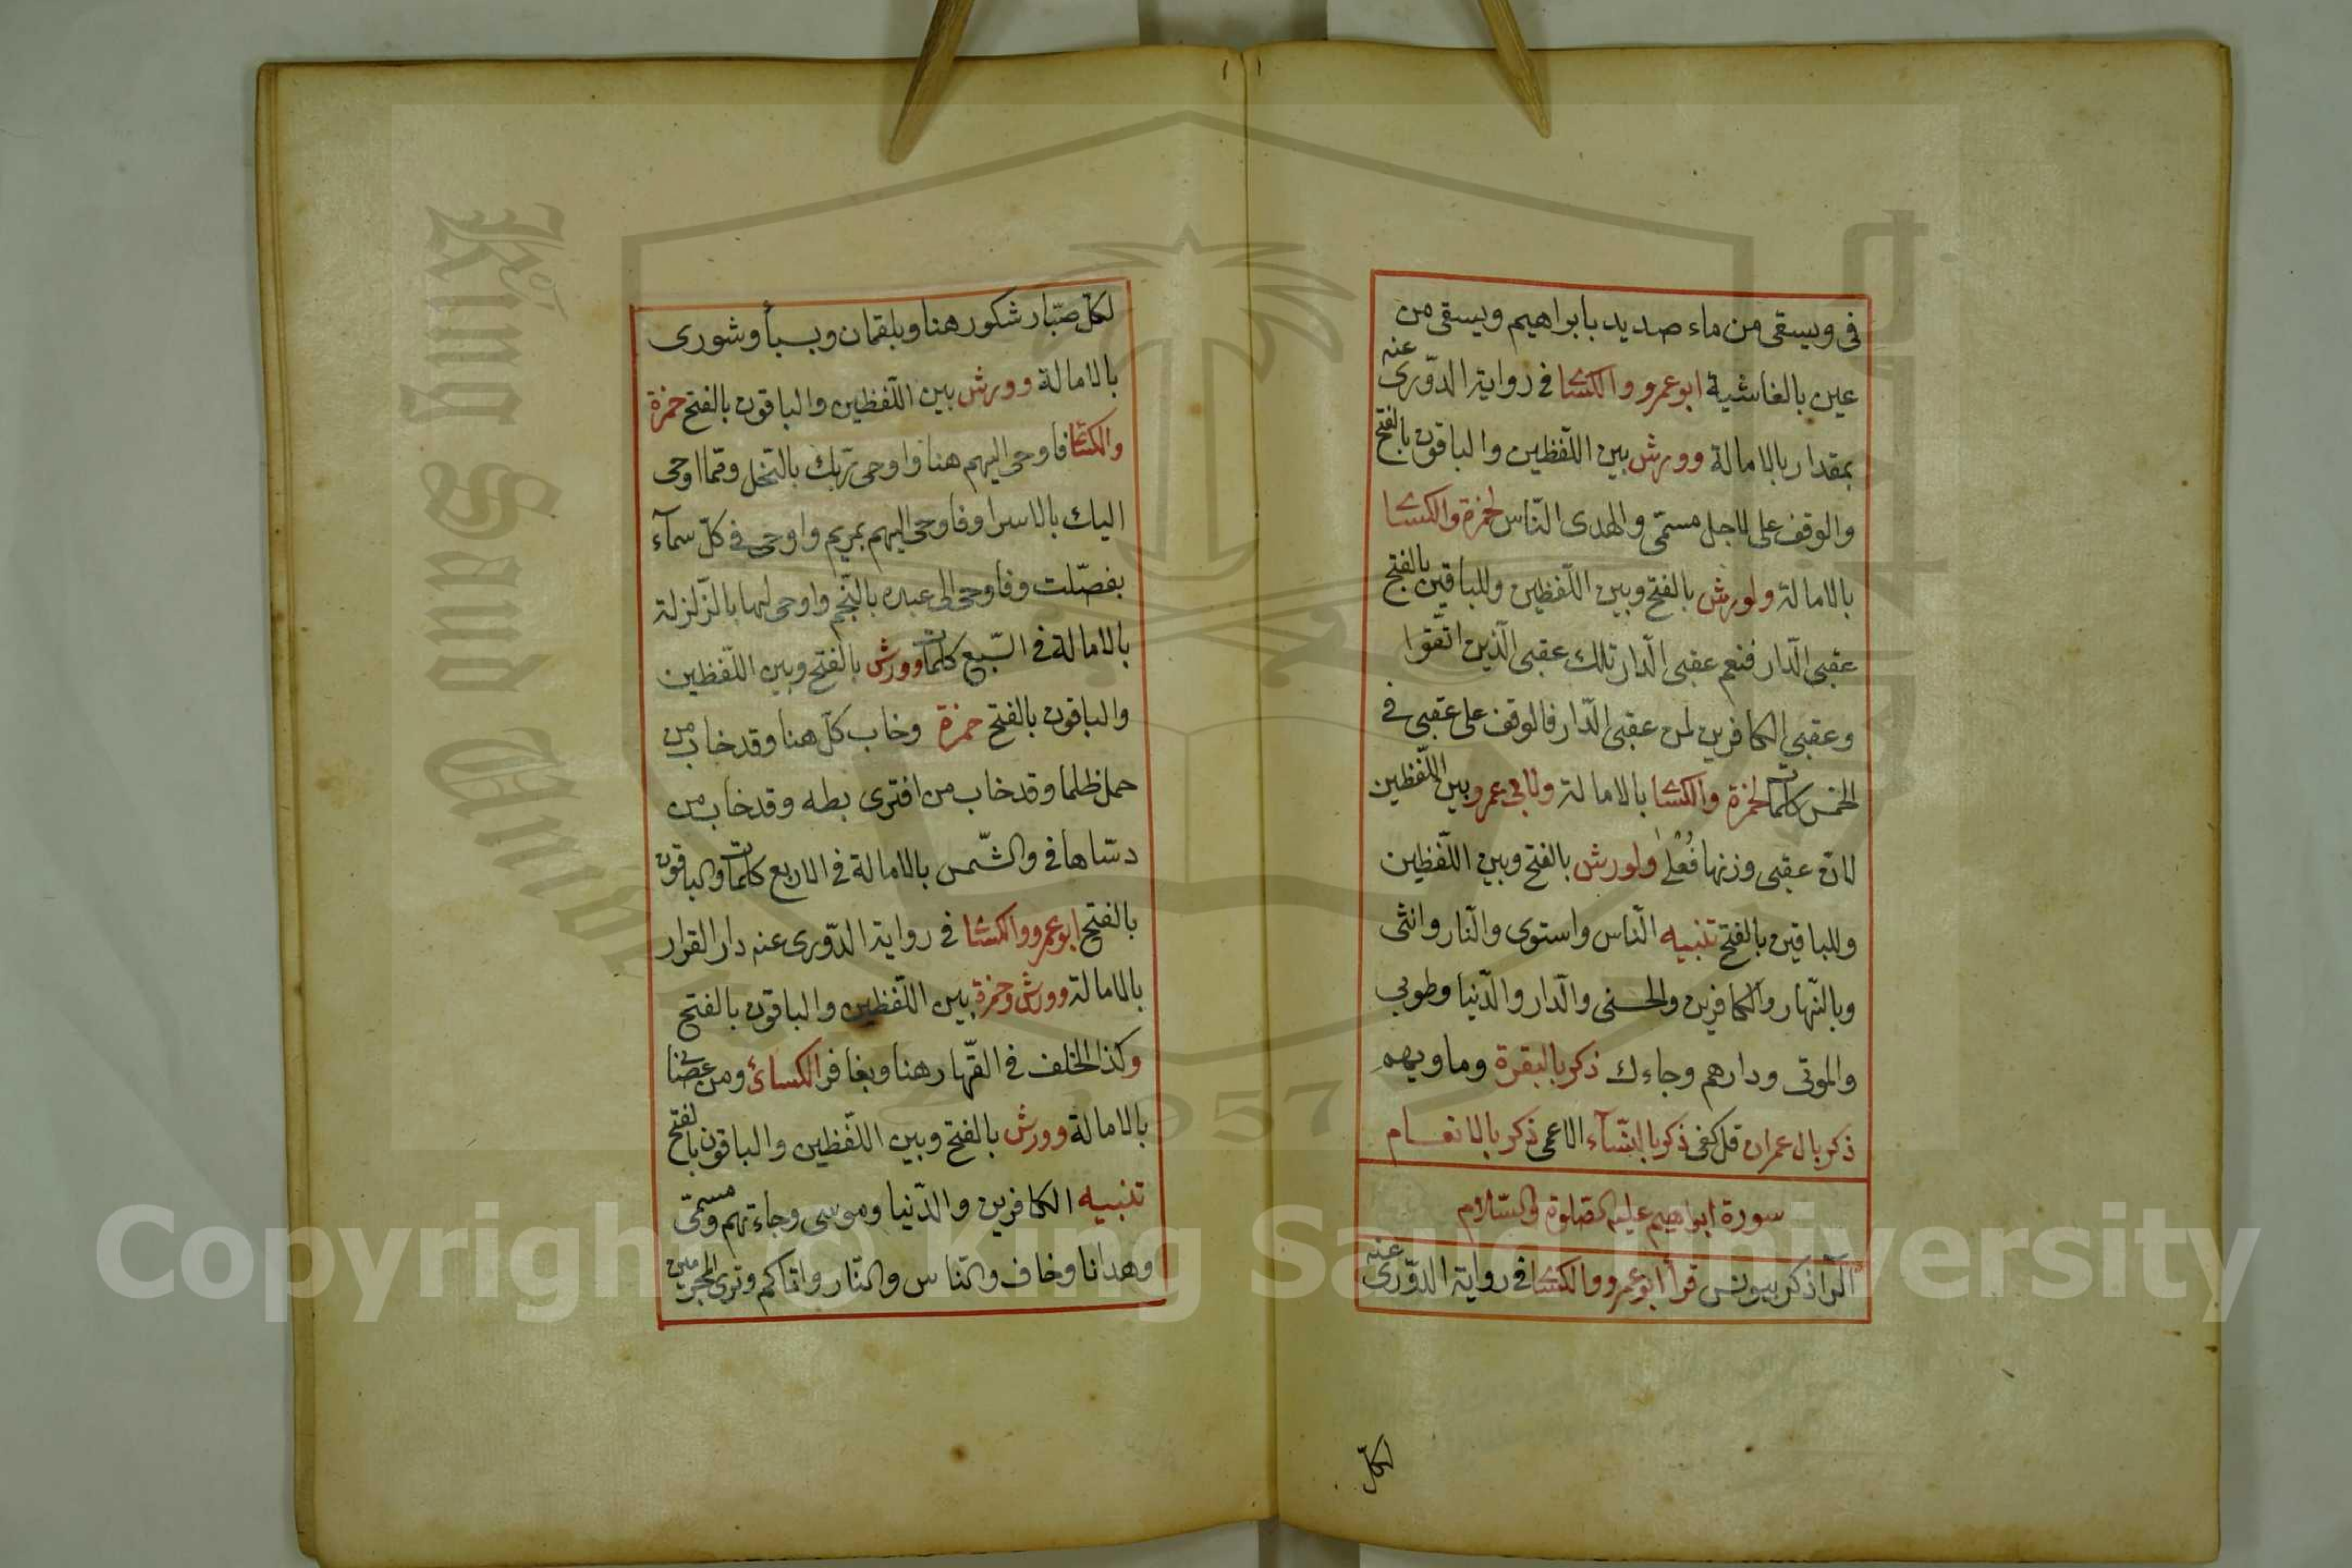 في ويسقى من ماء صديد بابراهيم ويسقى من
عين بالغاشية ابوعمرو والكسا في رواية الدّورى عنه
بمقدار بالامالة وورش بين اللّفظين والباقون بالفتح
والوقف على لاجل مسمّى والهدى النّاس لحمزة والكسا
بالامالة ولورش بالفتح وبين اللّفظين وللباقين بالفتح
عقبى الدّار فنعم عقبى الدّار تلك عقبى الّذين اتّقوا
وعقبى الكافرين لمن عقبى الدّار فالوقف على عقبى في
الخمس كلمات لحمزة والكسا بالامالة ولابى عمرو بين اللّفظين
لانّ عقبى وزنها فُعْلىٰ ولورش بالفتح وبين اللّفظين
وللباقين بالفتح تنبيه النّاس واستوى والنّار وانثى
وبالنّهار والكافرين والحسنى والدّار والدّنيا وطوبى
والموتى ودارهم وجاءك ذكر بالبقرة وماويهم
ذكر بال عمران قل كفى ذكر بالنّسآء الاعمى ذكر بالانعام
سورة ابراهيم عليه الصلوة والسّلام
الٓرا ذكر بيونس قرأ ابوعمرو والكسا في رواية الدّورى عنه
لكلّ
لكلّ صبّار شكور هنا وبلقمان وبسبأ وشورى
بالامالة وورش بين اللّفظين والباقون بالفتح حمزة
والكسا فاوحى اليهم هنا واوحى ربّك بالنّحل وممّا اوحى
اليك بالاسرا وفاوحى اليهم بمريم واوحى في كلّ سمآء
بفصّلت وفاوحى الى عبده بالنّجم واوحى لها بالزّلزلة
بالامالة في السّبع كلمات وورش بالفتح وبين اللّفظين
والباقون بالفتح حمزة وخاب كلّ هنا وقد خاب من
حمل ظلما وقد خاب من افترى بطه وقد خاب من
دسّاها في والشّمس بالامالة في الاربع كلمات والباقون
بالفتح ابوعمرو والكسا في رواية الدّورى عنه دار القرار
بالامالة وورش وحمزة بين اللّفظين والباقون بالفتح
وكذا الخلف في القهّار هنا وبغافر الكسائ ومن عصانى
بالامالة وورش بالفتح وبين اللّفظين والباقون بالفتح
تنبيه الكافرين والدّنيا وموسى وجاءتهم ومسمّى
وهدانا وخاف والنّاس والنّار واتاكم وترى المجرمين
King Saud
1957
Copyright © King Saud University